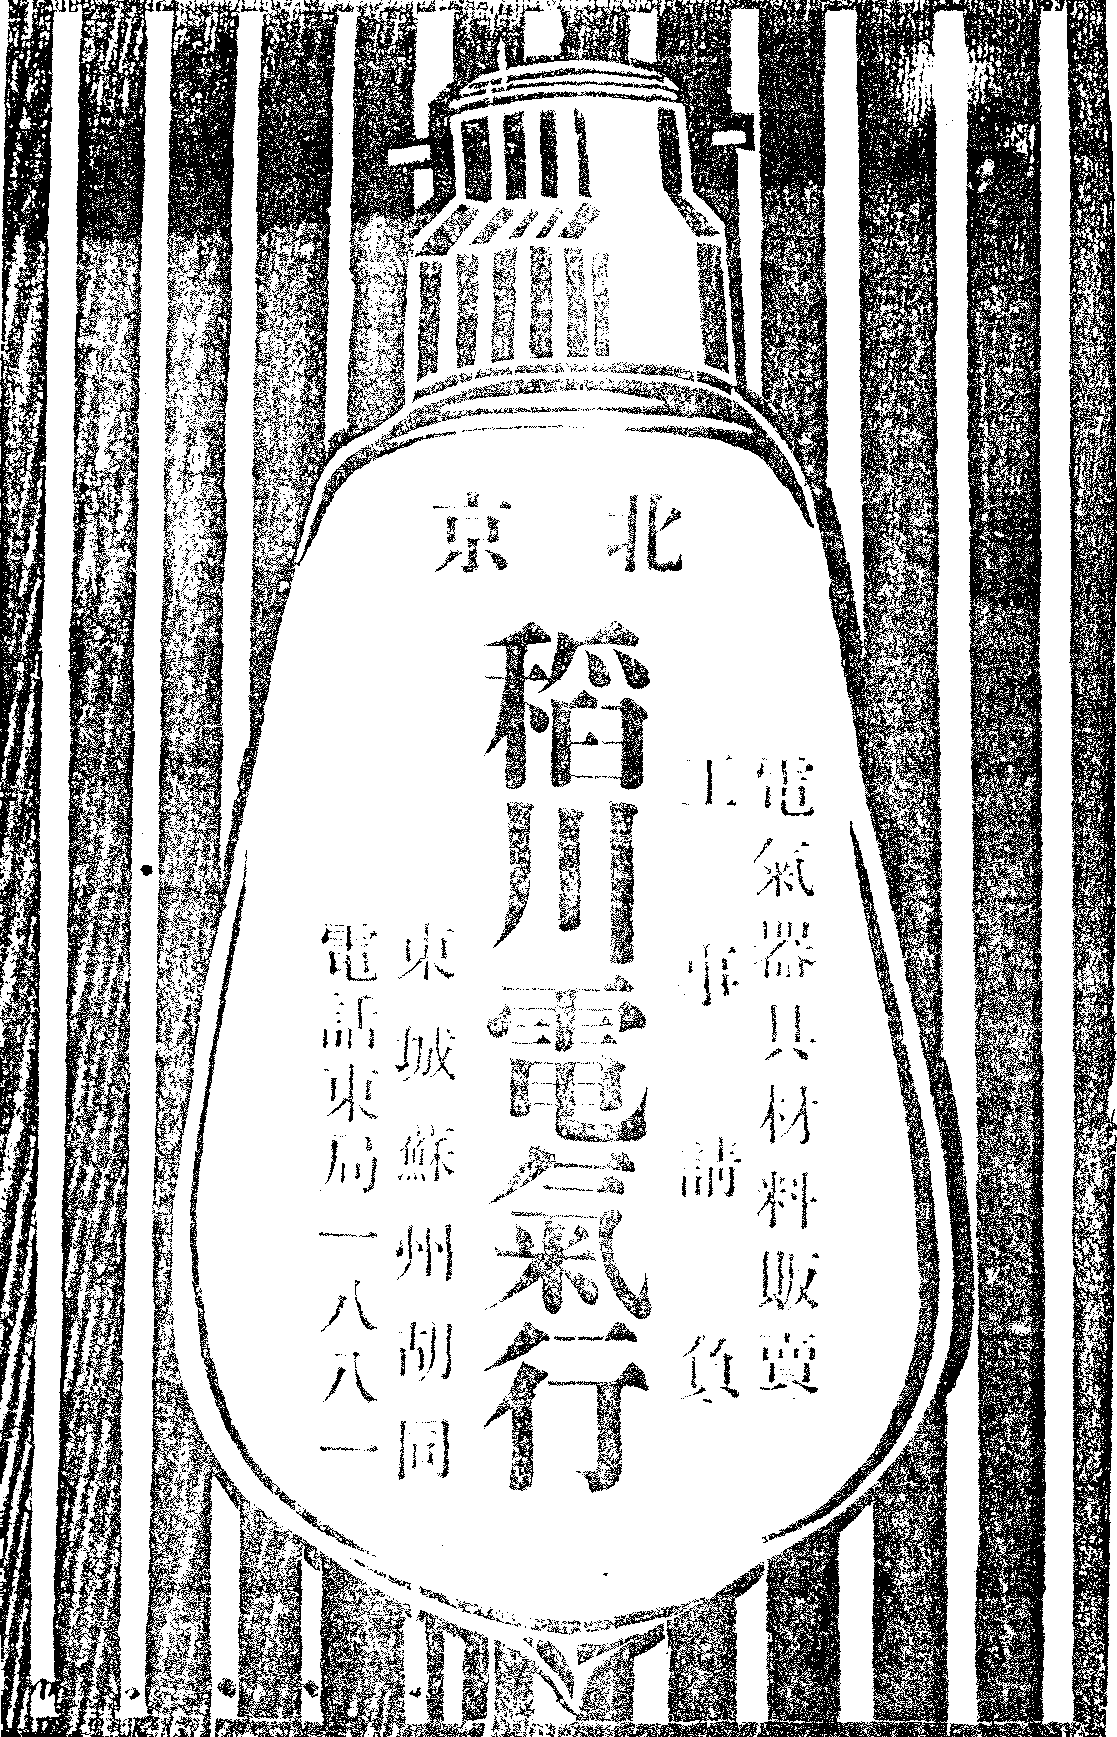 北京
電氣器具材料販賣
工事請負
稻川電氣行
東城蘇州胡同
電話東局一八八一